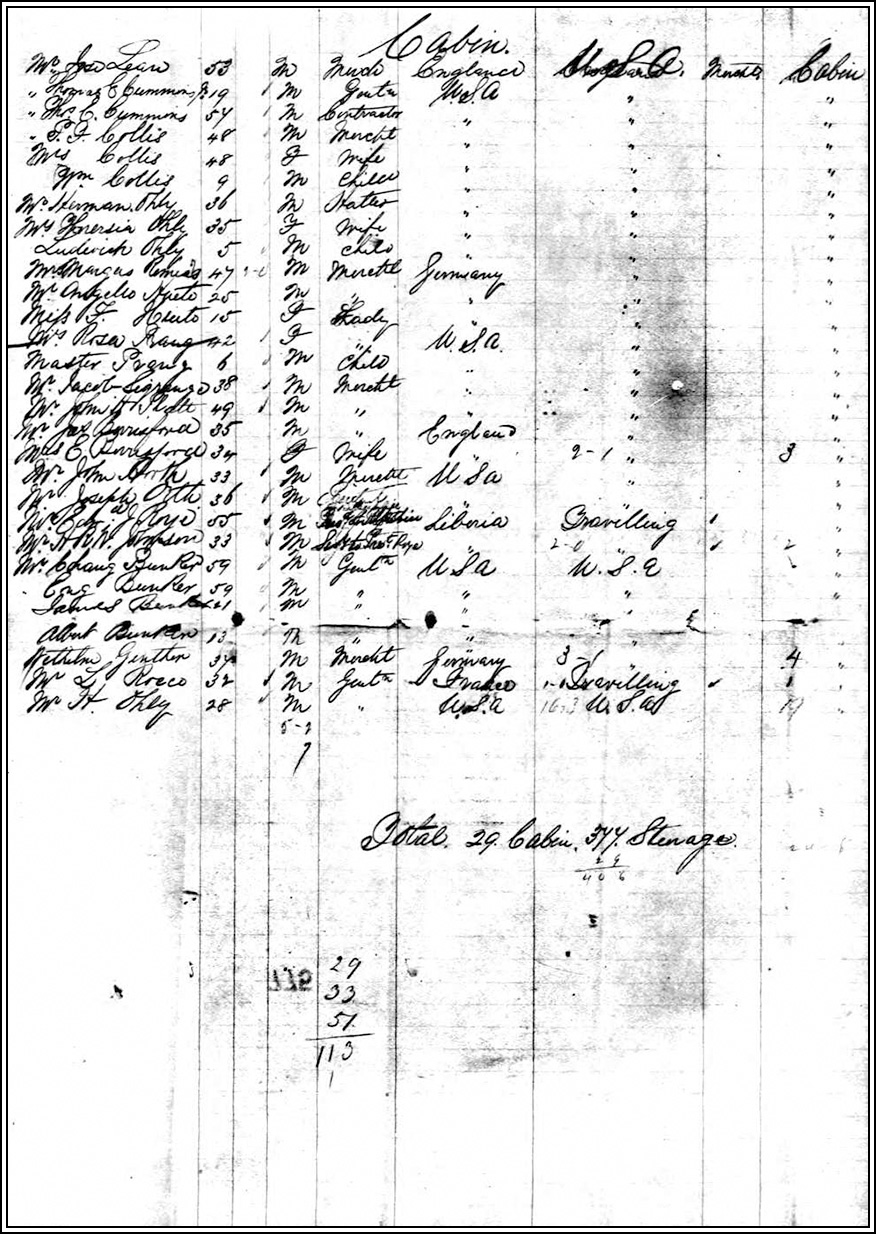 Cabin.
Mr Jno Lean 53 M Mercht England U.S.A. Cabin
" Thomas C Cummons Jr 19 M Gentn U.S.A " "
" Thos C. Cummons 54 M Contractor " " "
" P. F. Collis 48 M Mercht " " "
Mrs Collis 48 F Wife " " "
Wm Collis 9 M Child " " "
Mr Herman Ohly 36 M Hatter " " "
Mrs Theresia Ohly 35 F Wife " " "
Ludevich Ohly 5 M Child " " "
Marcus 47 M Mercht Germany " "
Mr Angello 25 M " " " "
Miss F. 15 F Lady " " "
Mrs Rosa Prang 42 F " U.S.A. " "
Master Prang 6 M Child " " "
Mr Jacob 38 M Mercht " " "
Mr John H Platt 49 M " " " "
Mr Jas Berresford 35 M " England " "
Mrs E Berresford 34 F Wife " 2-1 " 3 "
Mr John North 33 M Mercht U.S.A " "
Mr Joseph Orth 36 M " " "
Mr Edw J Roye 55 M Liberia Travelling "
Mr H R W Johnson 33 M Sect to Prest Roye " 2-0 2 "
Mr Chang Bunker 59 M Gentn U.S.A U.S.A "
Eng Bunker 59 M " " " "
James Bunker 21 M " " "
Albert Bunker 13 M " " " "
Wilhelm Genther 34 M Mercht Germany 3-1 4 "
Mr L. Rocco 32 M Gentn France 1- Travelling 1 "
Mr H. Ohly 28 M " U.S.A 16-3 U.S.A 19 "
5-2
7
Total. 29 Cabin. 377 Steerage.
29
406
29
33
51
113
1